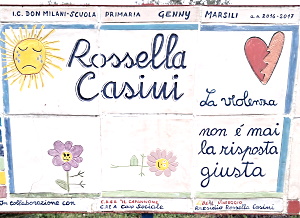 I.C. DON MILANI-SCUOLA PRIMARIA GENNY MARSILI a.s. 2016-2017
Rossella
Casini
La violenza
non é mai
la risposta
giusta
In collaborazione con
C.A.S.A "IL CAPANNONE"
C.R.E.A Coop Sociale
Arte Viareggio
Presidio Rossella Casini